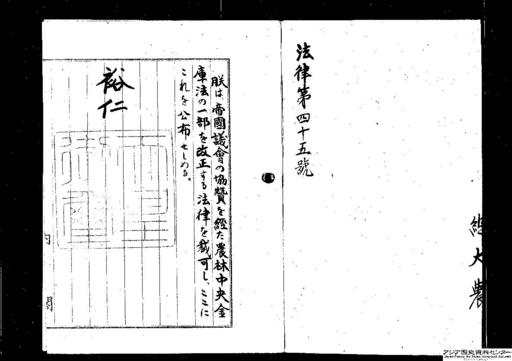 法律第四十五號
朕は帝國議會の協贊を経た農林中央金
庫法の一部を改正する法律を裁可し、ここに
これを公布せしめる。
裕仁
内閣
總大農
アジア歴史資料センター